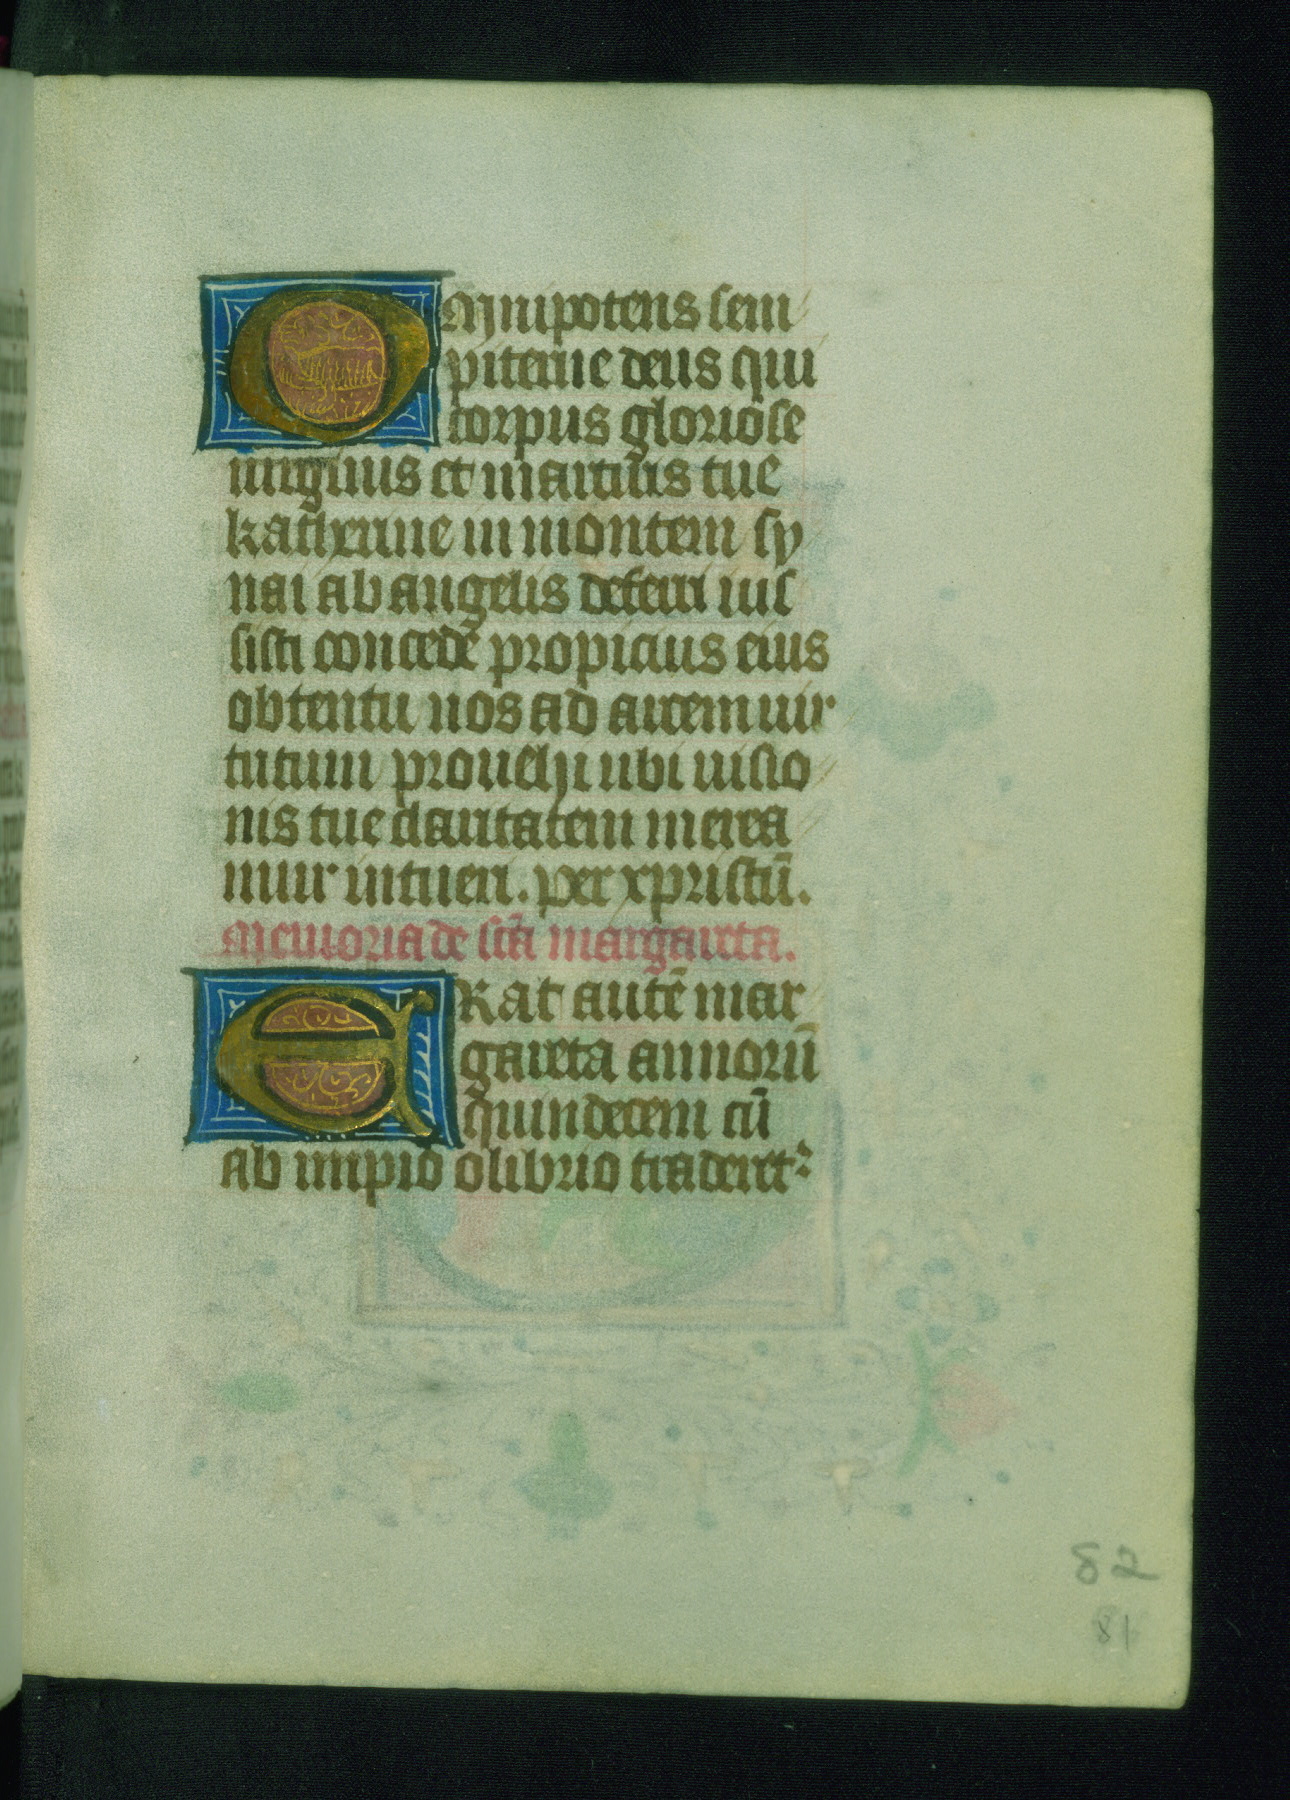 Omnipotens sem
piterne deus qui
corpus gloriose
uirginis et martiris tue
katherine in montem sy
nai ab angelis deferri iuſ
ſiſti concede propicius eius
obtentu nos ad arcem uir
tutum prouehi ubi uiſio
nis tue claritatem merea
mur intueri. per xpriſtū.
Memoria de ſctā margareta.
ERat autē mar
gareta annorū
quindecem cū
ab impio olibrio traderet
82
81